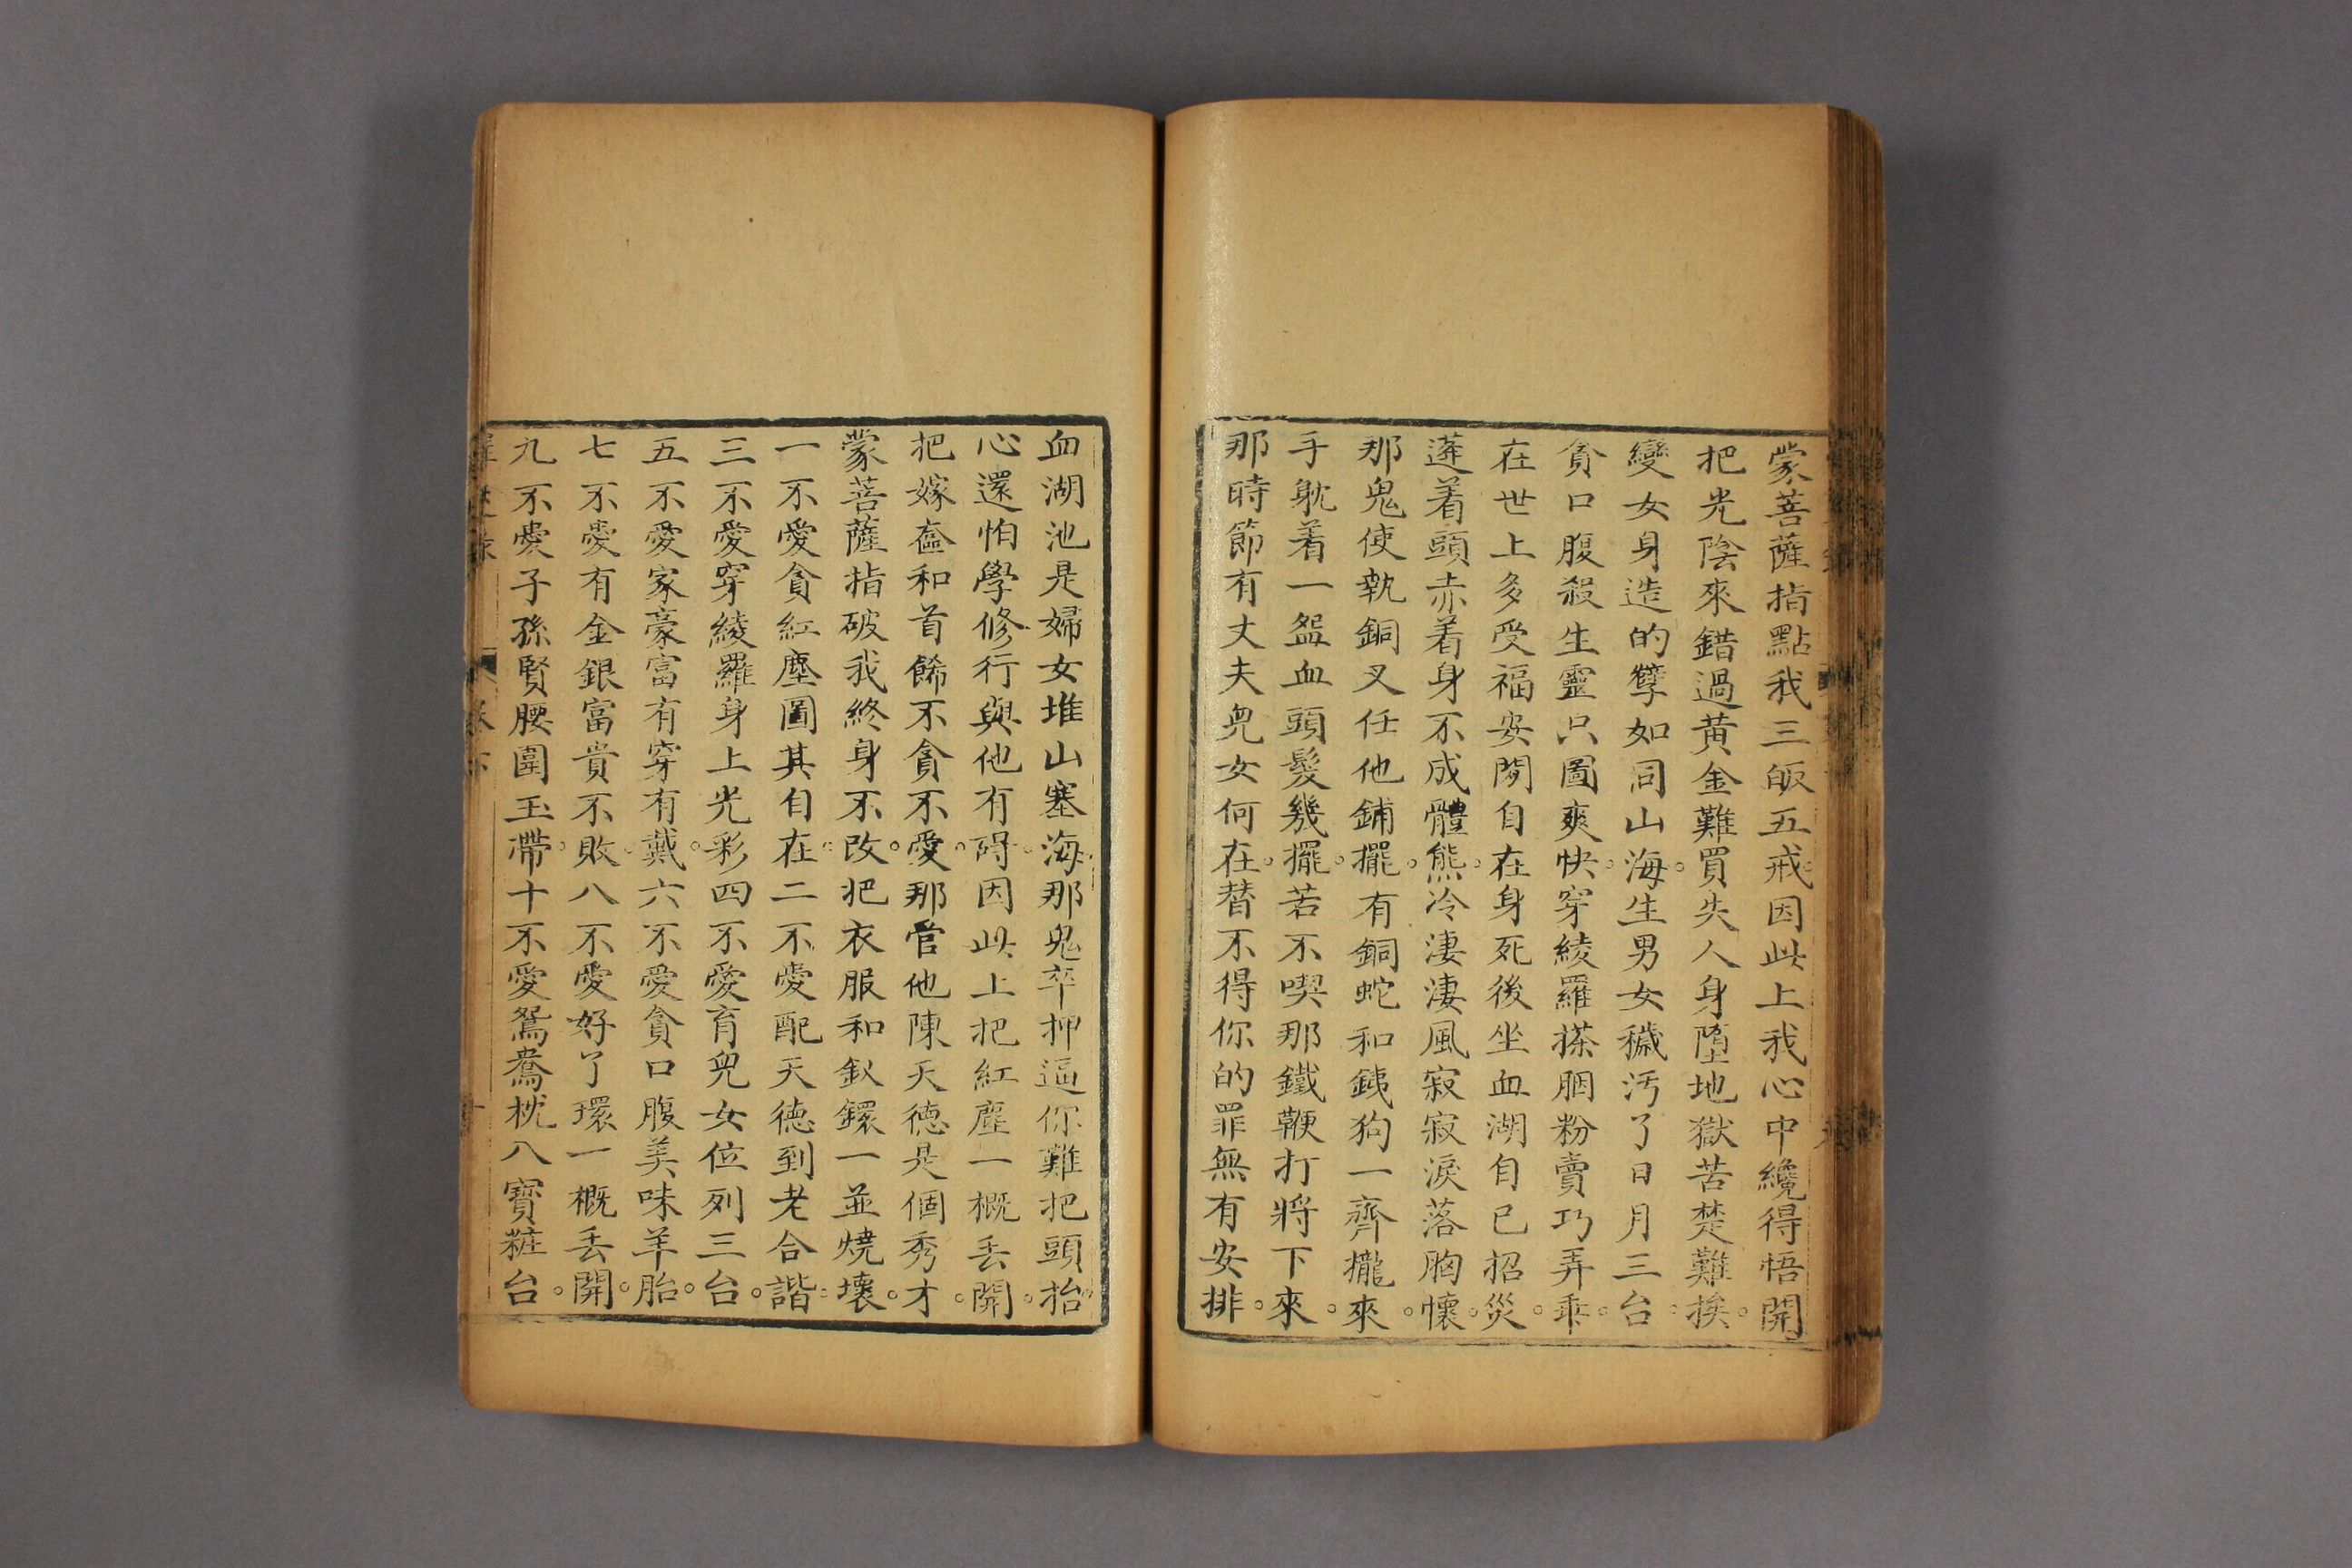 蒙菩薩指點我三皈五戒因此上我心中纔得悟開
把光陰來錯過黃金難買失人身墮地獄苦楚難挨
變女身造的孽如同山海生男女穢汚了日月三台
貪口腹殺生靈只圖爽快穿綾羅搽胭粉賣巧弄乖
在世上多受福安閒自在身死後坐血湖自己招災
蓬着頭赤着身不成體態冷淒淒風寂寂淚落胸懷
那鬼使執銅叉任他鋪擺有銅蛇和鉄狗一齊攏來
手躭着一盌血頭髮幾擺若不喫那鐵鞭打將下來
那時節有丈夫兒女何在替不得你的罪無有安排
血湖池是婦女堆山塞海那鬼卒押逼你難把頭抬
心還怕學修行與他有碍因此上把紅塵一概丟開
把嫁奩和首餙不貪不愛那管他陳天德是個秀才
蒙菩薩指破我終身不改把衣服和釵鐶一並燒壞
一不愛貪紅塵圖其自在二不愛配天德到老合諧
三不愛穿綾羅身上光彩四不愛育兒女位列三台
五不愛家豪富有穿有戴六不愛貪口腹美味羊胎
七不愛有金銀富貴不敗八不愛好了環一概丟開
九不愛子孫賢腰圍玉帶十不愛鴛鴦枕八寶粧台